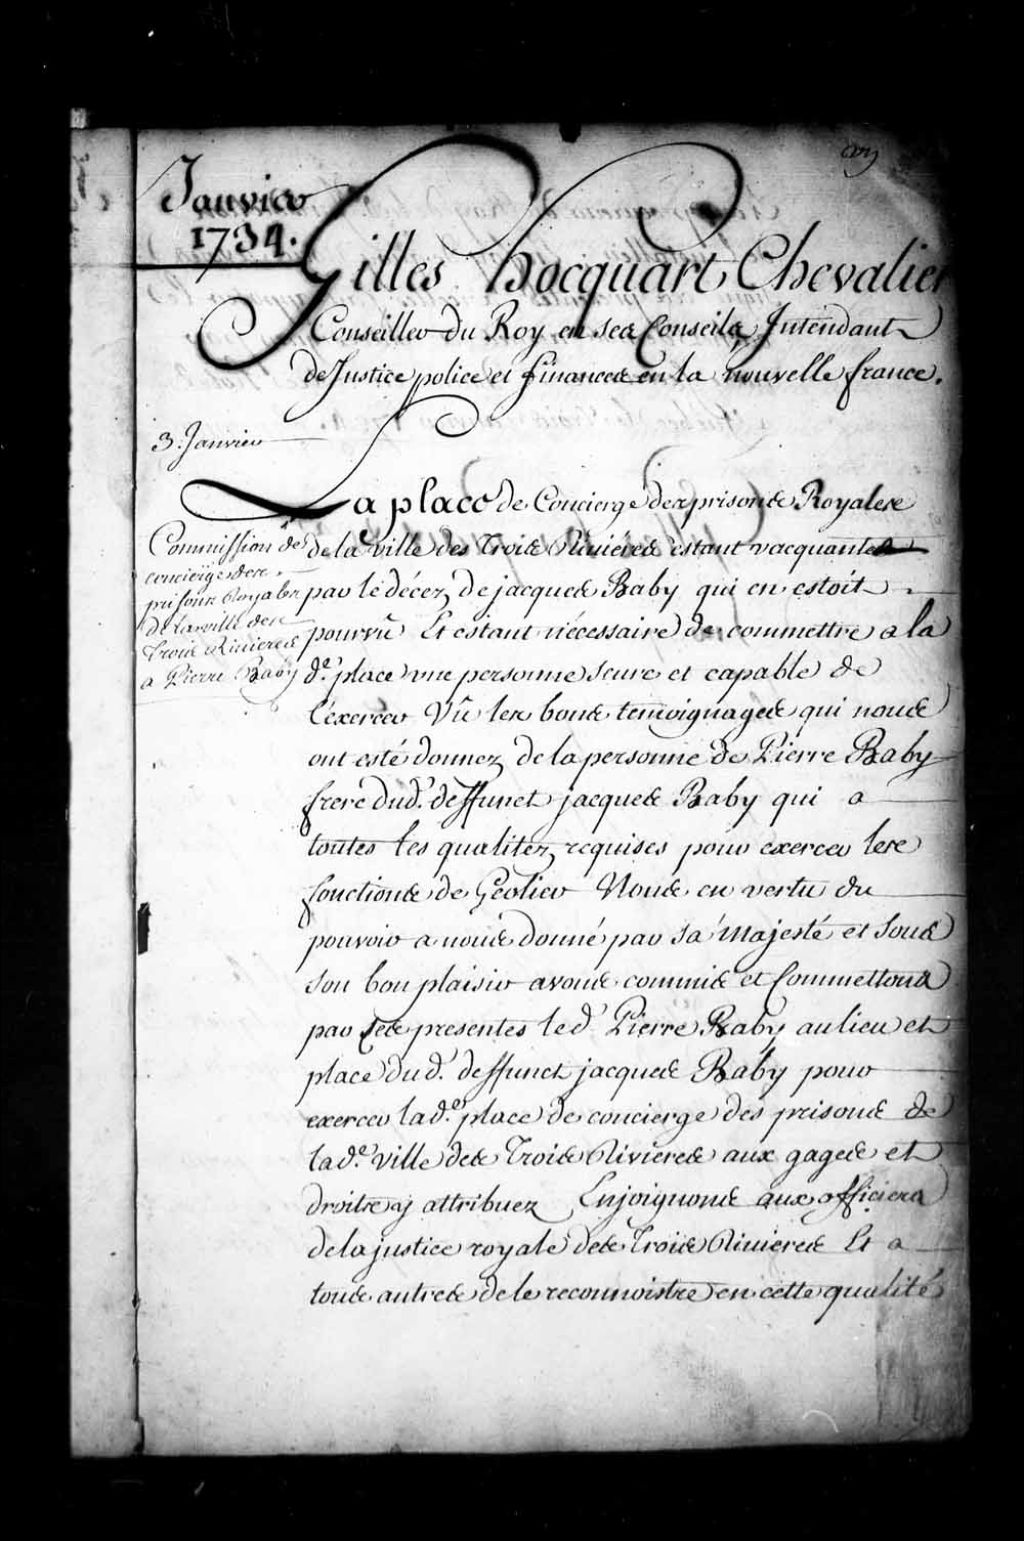 Janvier
1734.
Gilles hocquart Chevalier
Conseiller du Roy en ses Conseils Intendant
de Justice police et finances en la nouvelle france.
3. Janvier
La place de Concierge des prisons Royales
Commission de
concierge des
prisons Royales
de la ville des
Trois Rivieres
a Pierre Baby
de la ville des Trois Rivieres estant vacquante
par le décez de jacques Baby qui en estoit
pourvû Et estant nécessaire de commettre a la
de. place une personne seure et capable de
l'éxercer Vû les bons temoignages qui nous
ont esté donnez de la personne de Pierre Baby
frere dud. deffunct jacques Baby qui a
toutes les qualitez requises pour exercer les
fonctions de Geolier Nous en vertu du
pouvoir a nous donné par sa Majesté et sous
son bon plaisir avons commis et Commettons
par Ces presentes led. Pierre Baby au lieu et
place dud. deffunct jacques Baby pour
exercer lade. place de concierge des prisons de
lade. ville des Trois Rivieres aux gages et
droits y attribuez Enjoignons aux officiers
de la justice royale des Trois Rivieres Et a
tous autres de le reconnoistre en cette qualité